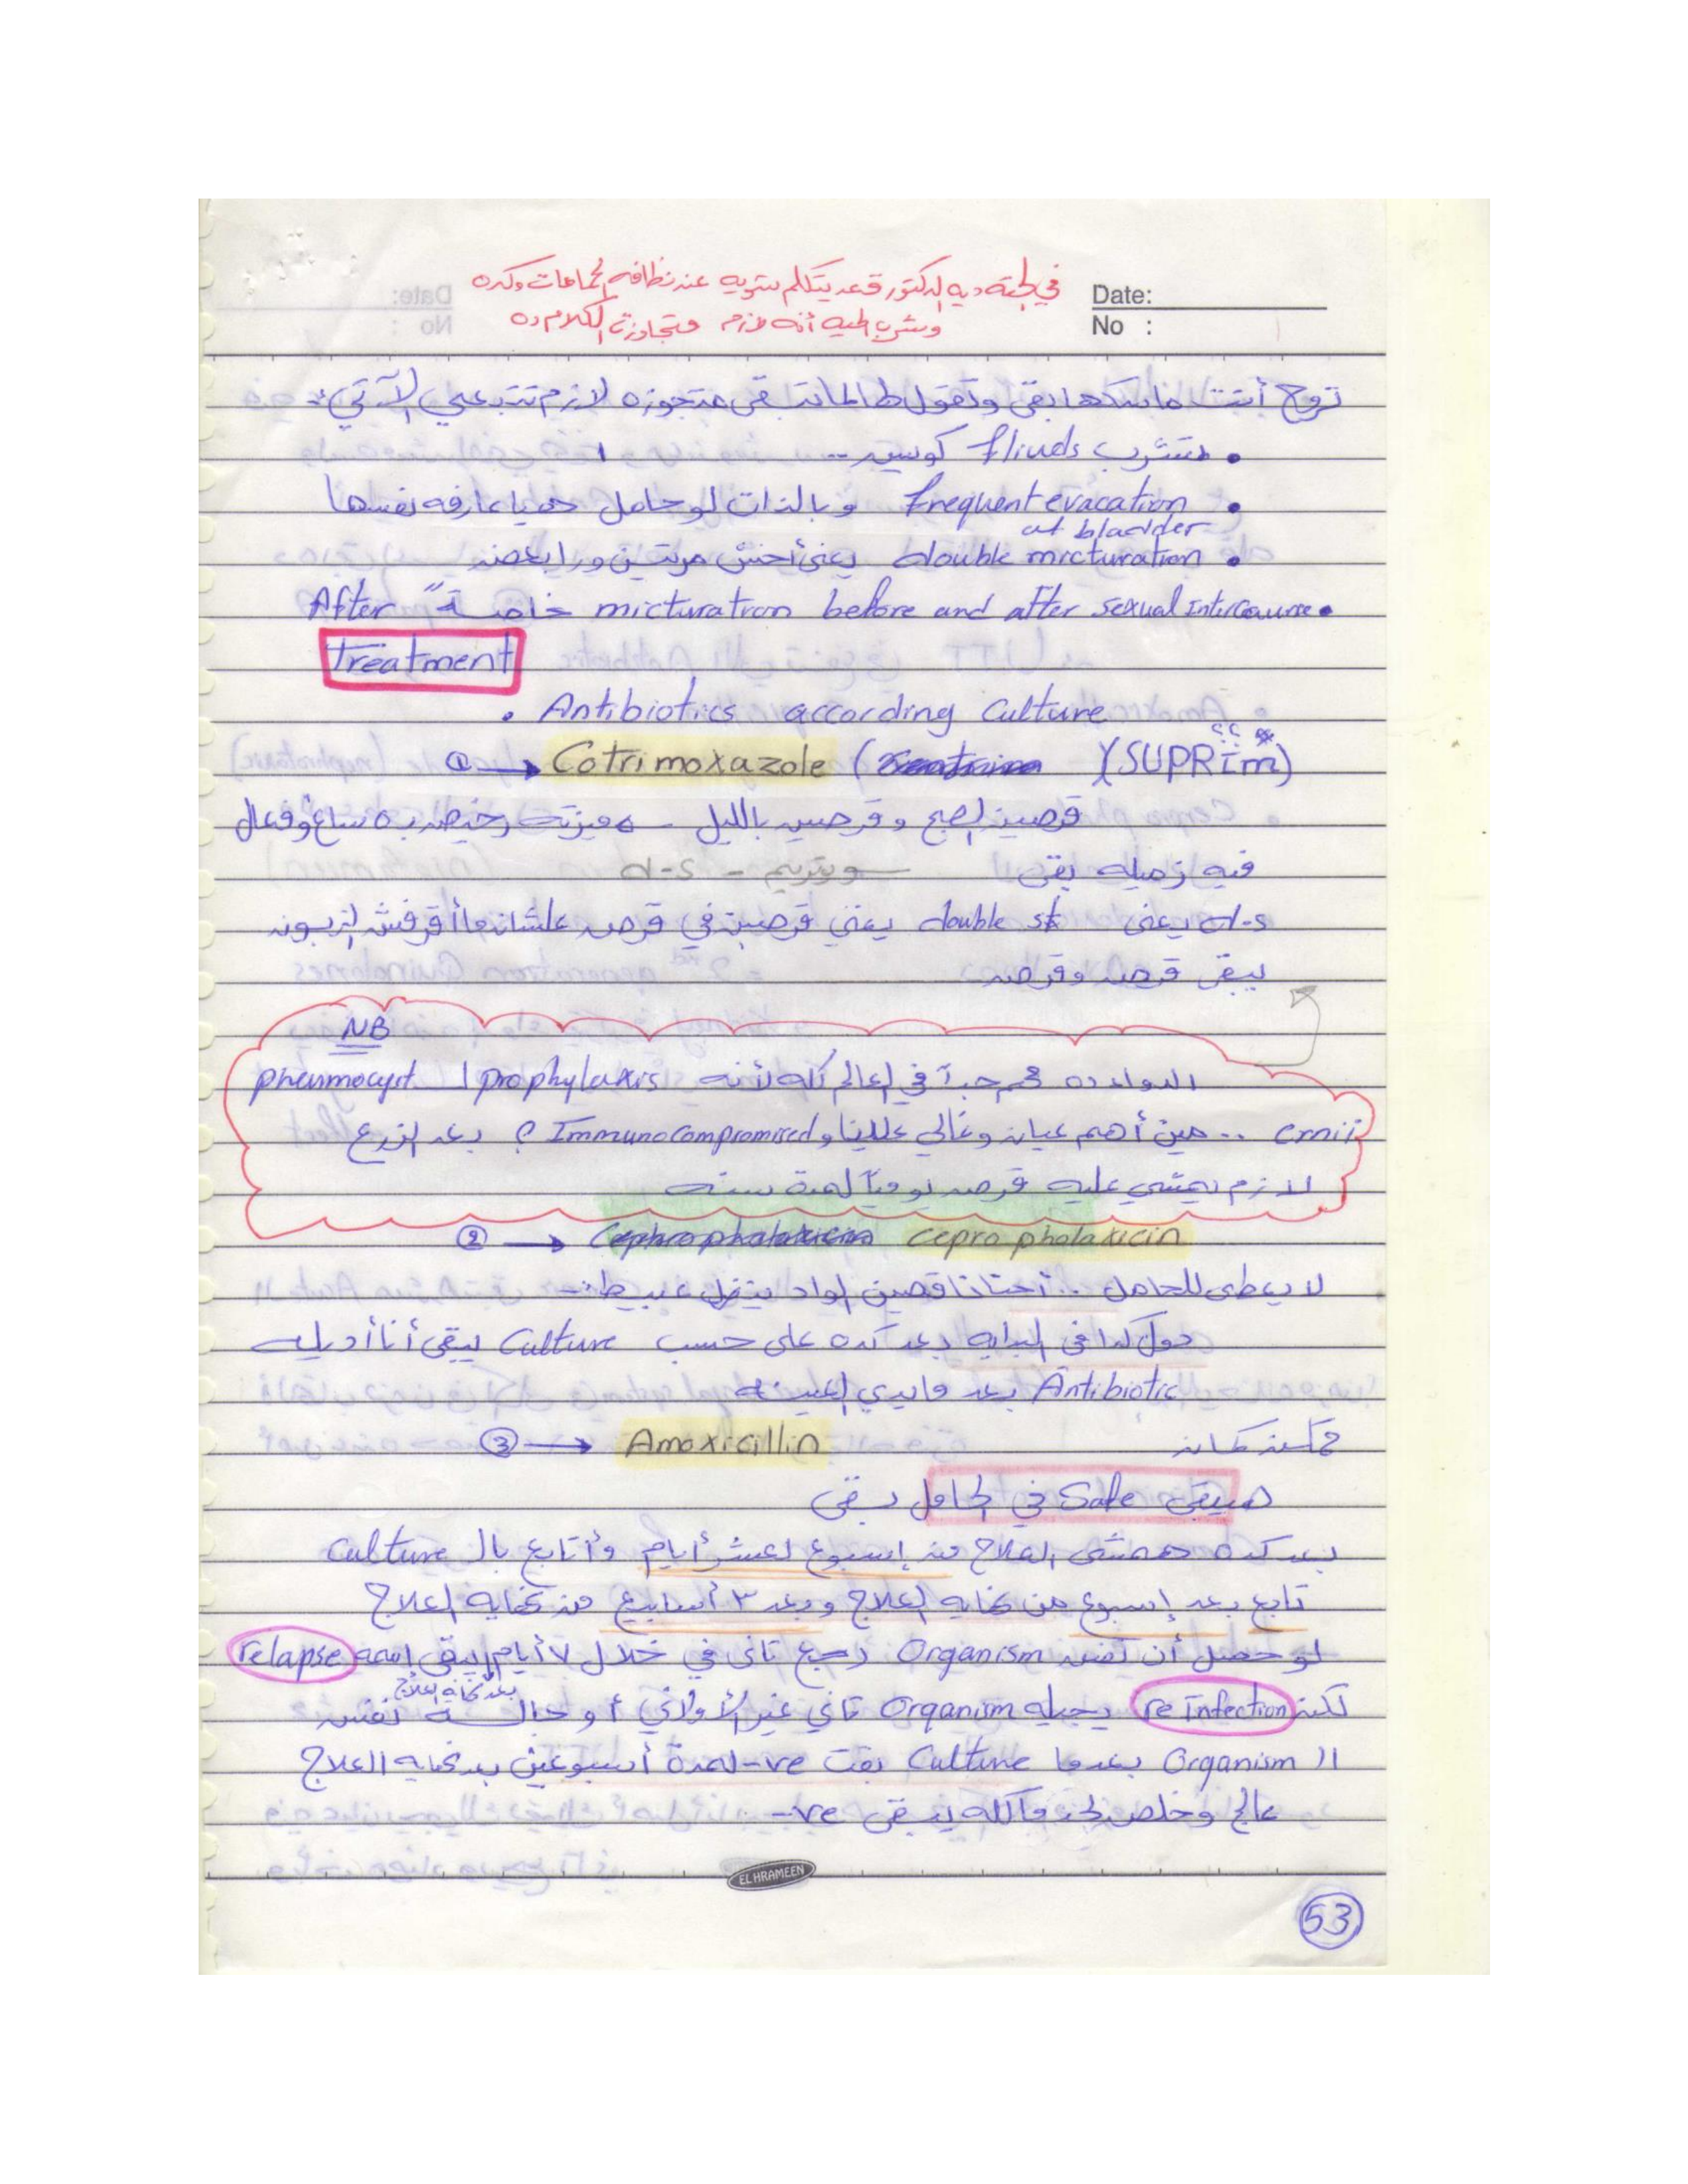 في الحتة ديه الدكتور قعد يتكلم شويه عن نظافه الحمامات وكده
وشرب الميه أنه لازم فتجاوزت الكلام ده
Date:
No :
تروح أنت ماسكها بقى وتقول طالما بقى متجوزه لازم تتبعي الآتي :-
• هتشرب fliuds كويس --
• Frequent evacation وبالذات لو حامل هي يا عارفه نفسها
at bladder
• double micturation يعني أخش مرتين ورا بعض
• micturation before and after sexual Intercourse خاصة " After
Treatment
• Antibiotics according Culture
① → Cotrimoxazole ( )(SUPRIM)
قرصين الصبح وقرصين بالليل - ميزته رخيص وفعال
فيه زميله بقى سوبتريم - d-s
d-s يعني double st يعني قرصين في قرص علشان ما أقرفش الزبون
يبقى قرص وقرص
NB
الدواء ده مهم جداً في العالم كله لأنه prophylaxis ل pneumocyst
crnii .. مين أهم عيان وغالي علينا و Immunocompromised ؟ بعد الزرع
لازم يمشي عليه قرص يومياً لمدة سنه
② → Cephrophalaxicin Ceprophalaxicin
لا يعطى للحامل .. أحنا ناقصين الواد ينزل عبيط :-
دول كدا في البدايه بعد كده على حسب Culture يبقى أنا أديله
Antibiotic بعد ما يدي العينه
③ → Amoxicillin
هيبقى Safe في الحامل بقى
بعد كده همشي العلاج من إسبوع لعشر أيام وأتابع بال Culture
تابع بعد إسبوع من نهايه العلاج وبعد ٣ أسابيع من نهايه العلاج
لو حصل أن نفس Organism رجع تاني في خلال ٧ أيام يبقى إسمه relapse
بعد نهايه العلاج
لكن re Infection يجيله Organism تاني غير الأولاني أو جاله نفس
ال Organism بعدما Culture بقت -ve لمدة أسبوعين بعد نهايه العلاج
عالج وخلص لحد ما كله يبقى -ve
EL HRAMEEN
53